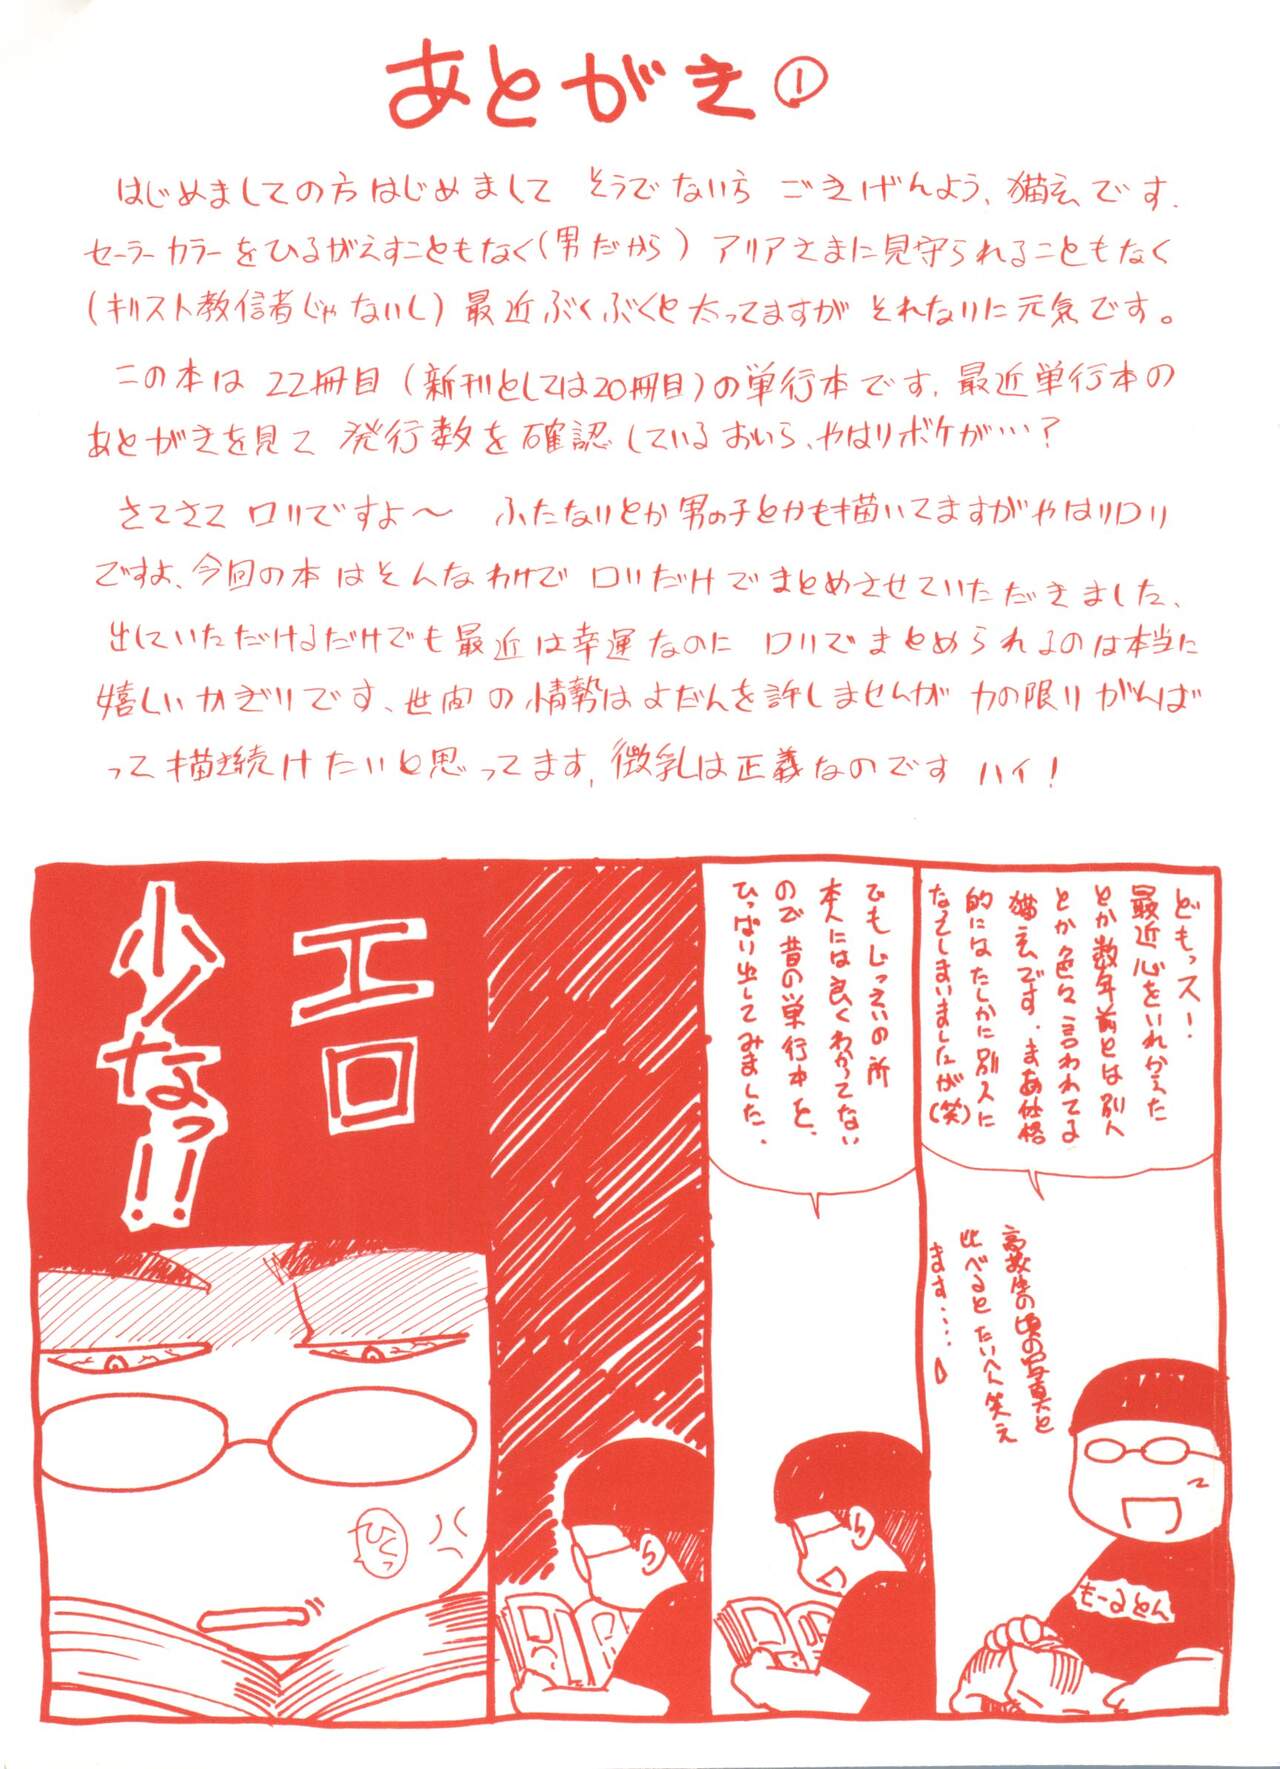 あとがき①
はじめましての方はじめまして そうでない方 ごきげんよう、猫玄です.
セーラーカラーをひるがえすこともなく(男だから) アリアさまに見守られることもなく
(キリスト教信者じゃないし) 最近ぶくぶくと太ってますが それなりに元気です。
この本は 22冊目(新刊としては20冊目)の単行本です. 最近単行本の
あとがきを見て 発行数を確認しているおいら、やはりボケが…?
さてさて ロリですよ〜 ふたなりとか男の子とかも描いてますがやはりロリ
ですよ、今回の本はそんなわけで ロリだけでまとめさせていただきました、
出していただけるだけでも最近は幸運なのに ロリでまとめられるのは本当に
嬉しいかぎりです、世間の情勢はよだんを許しませんが 力の限りがんば
って描き続けたいと思ってます, 微乳は正義なのです ハイ!
どもっス!
最近心をいれかえた
とか数年前とは別人
とか色々言われてる
猫玄です. まあ体格
的にはたしかに別人に
なってしまいましたが(笑)
高校生の頃の写真と
比べると たいへん笑え
ます……
もーるとん
でもじっさいの所
本人には良くわかってない
ので昔の単行本を、
ひっぱり出してみました.
エロ
少なっ!!
ひくっ